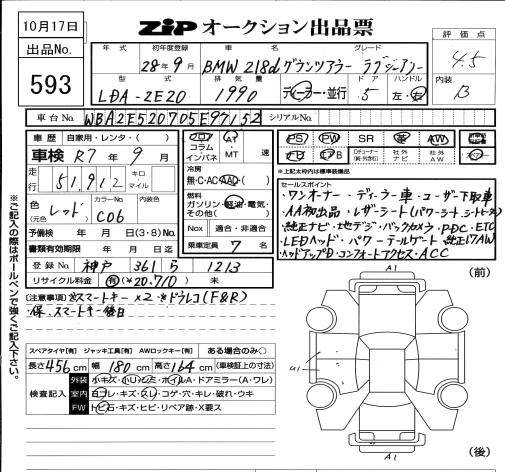 10月17日
ZIP オークション出品票
評価点
4.5
内装
B
出品No.
593
年式 初年度登録 車名 グレード
28年9月 BMW 218d グランツアラー ラグジュアリー
型式 排気量 ドア ハンドル
LDA-2E20 1990 ディーラー・並行 5 左・右
車台No. WBA2E520705E97152 シリアルNo.
車歴 自家用・レンタ・( )
車検 R7年9月
走行 51,912 キロ マイル
色 (元色) レッド カラーNo. C06 内装色
予備検 年 月 日(3・8)No.
書類有効期限 年 月 日迄
登録No. 神戸 361 ら 1213
リサイクル料金 有(¥20,710) 未
フロア コラム インパネ
AT・MT 速
冷房
無・C・AC・AAC・( )
燃料
ガソリン・軽油・電気・その他( )
Nox 適合・非適合
乗車定員 7 名
PS PW SR 革 AW
ナビ エアB Dチューナー 社外ナビ 社外AW
*上記太枠内は標準装備品
セールスポイント
・ワンオーナー・ディーラー車・ユーザー下取車
・AA初出品・レザーシート(パワーシート、シートヒーター)
・純正ナビ・地デジ・バックカメラ・PDC・ETC
・LEDヘッド・パワーテールゲート・純正17AW
・ヘッドアップD・コンフォートアクセス・ACC
(注意事項) ※スマートキー×2 ※ドラレコ(F&R)
・保、スマートキー後日
※ご記入の際はボールペンで強くご記入下さい。
スペアタイヤ[有] ジャッキ工具[有] AWロックキー[有] ある場合のみ○
長さ456cm 幅180cm 高さ164cm (車検証上の寸法)
検査記入
外装 小キズ・小凹・シミ・ホイルA・ドアミラー(A・ワレ)
室内 ヨゴレ・キズ・スレ・コゲ・穴・キレ・破れ・ウキ
FW トビ石・キズ・ヒビ・リペア跡・X要ス
A1
(前)
U1
A1
(後)